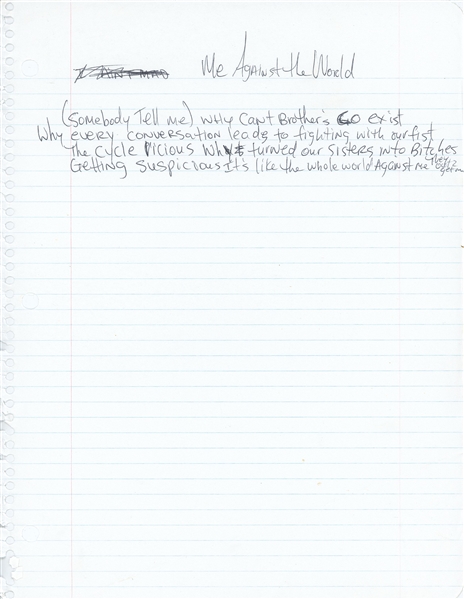 Me Against the World
(Somebody Tell me) Why Cant Brother's Co exist
Why every conversation leads to fighting with our fist
The cycle vicious what turned our sisters into Bitches
Getting suspicious It's like the whole world Against me